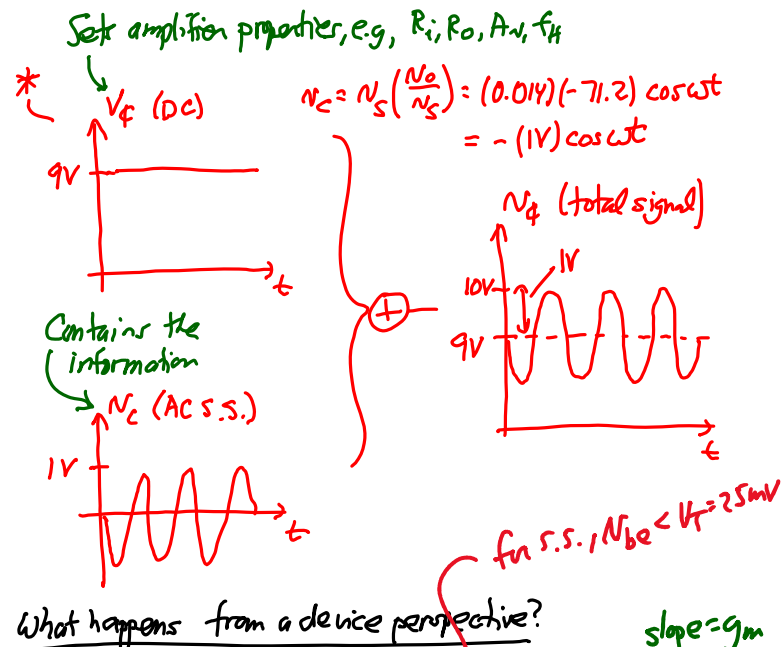 Sets amplition properties, e.g., Ri, Ro, Av, fH
*
V¢ (DC)
9V
t
Nc = Ns(No/Ns) = (0.014)(-71.2) cosωt
= -(1V) cosωt
N¢ (total signal)
1V
10V
9V
t
+
Contains the
information
Nc (AC s.s.)
1V
t
for s.s., Nbe < VT = 25mV
What happens from a device perspective?
slope = gm